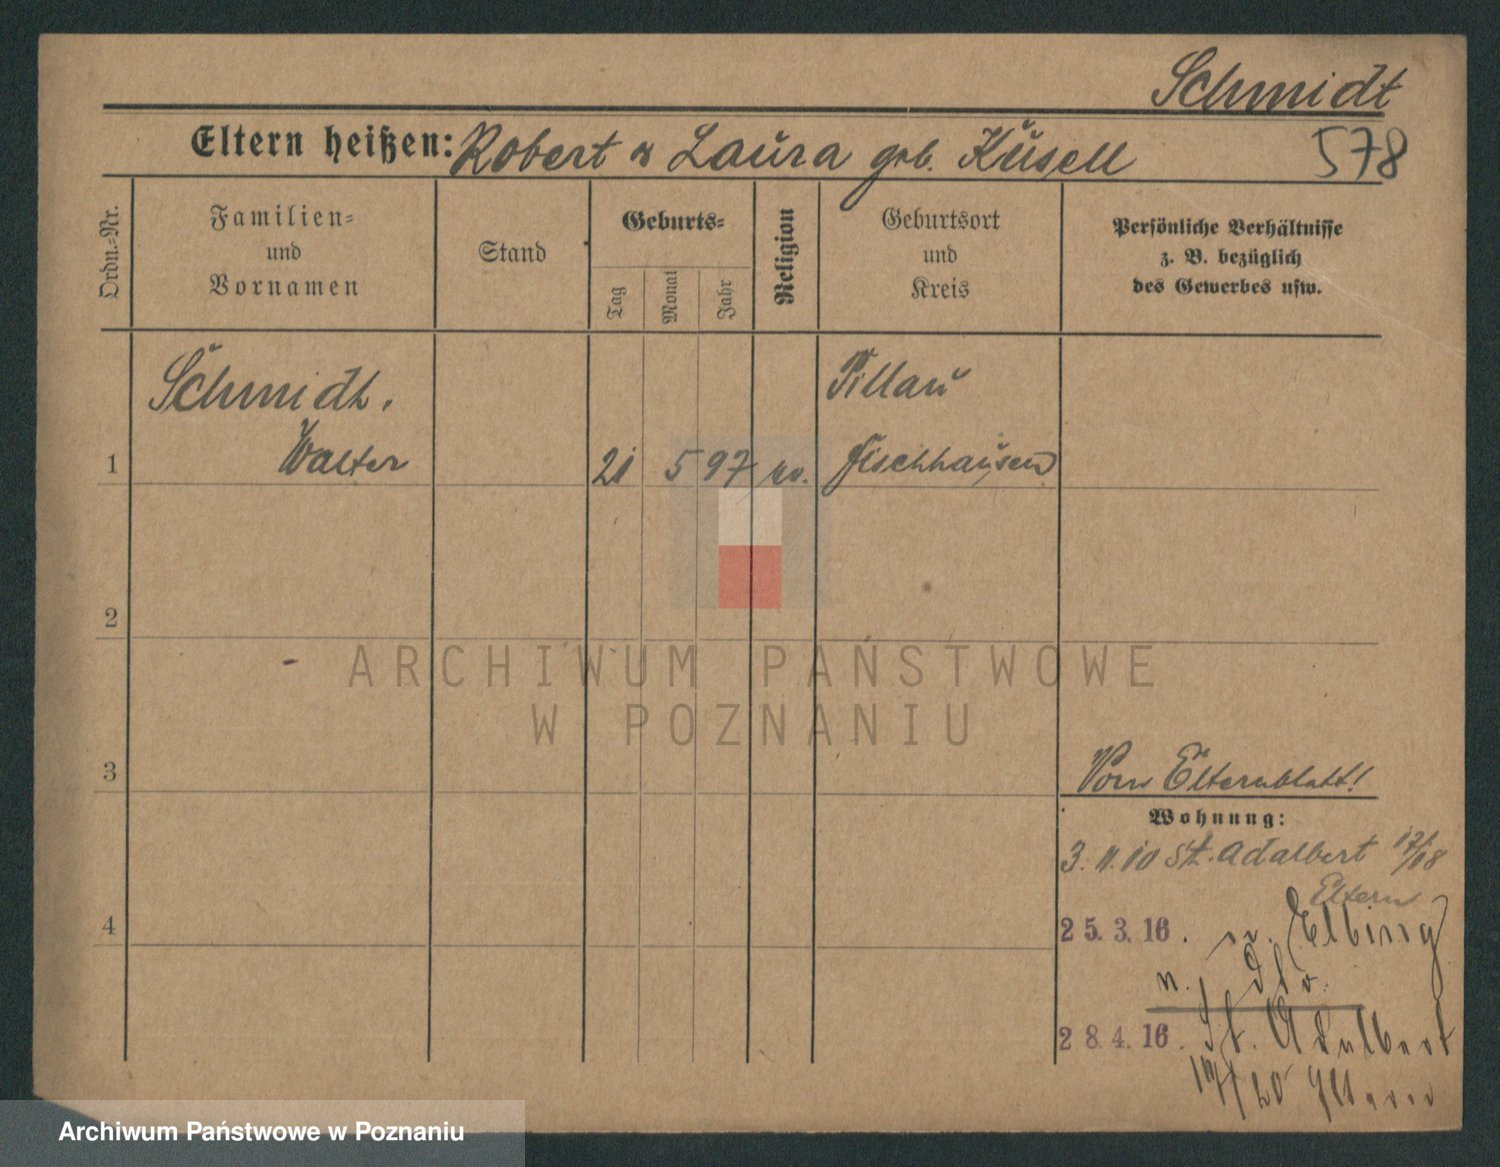 Schmidt
Eltern heißen: Robert & Laura geb. Küsell 578
Ordn.=Nr.
Familien=
und
Vornamen
Stand
Geburts=
Tag
Monat
Jahr
Religion
Geburtsort
und
Kreis
Persönliche Verhältnisse
z. B. bezüglich
des Gewerbes usw.
1
Schmidt,
Walter
21 5 97 ev.
Pillau
Fischhausen
2
ARCHIWUM PAŃSTWOWE
W POZNANIU
3
Vom Elternblatt!
Wohnung:
3.11.10 St. Adalbert 17/18
Eltern
4
25.3.16. Elbing
28.4.16. St. Adalbert
Eltern
Archiwum Państwowe w Poznaniu